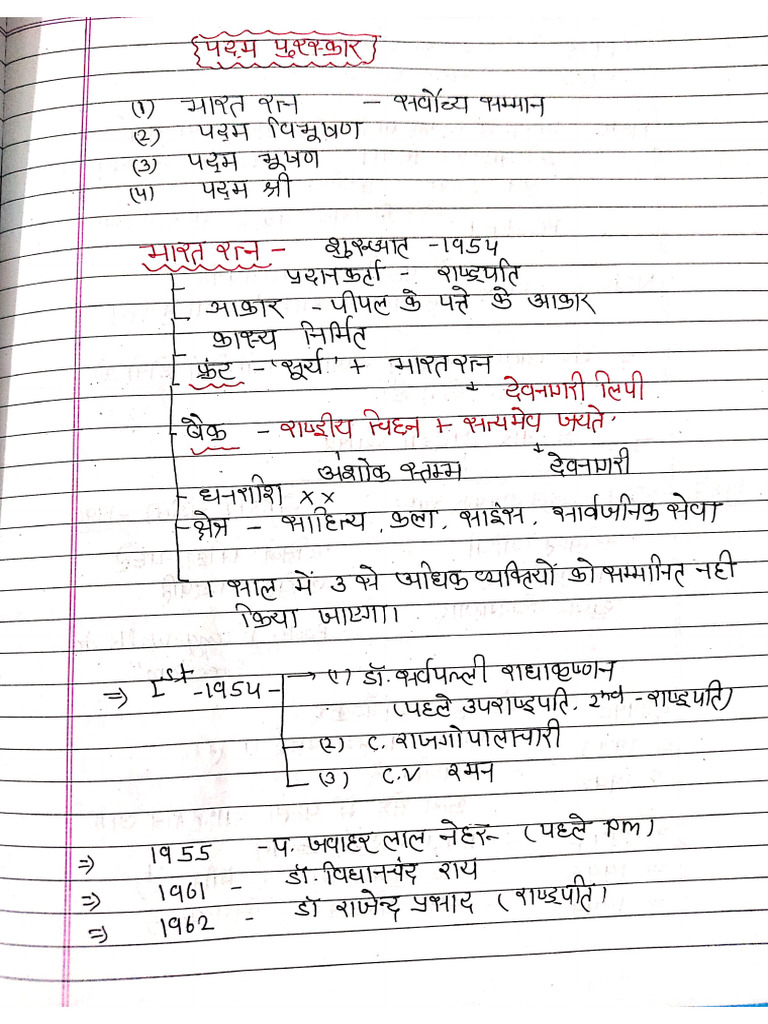 {पद्म पुरस्कार}
(1) भारत रत्न - सर्वोच्य सम्मान
(2) पद्म विभूषण
(3) पद्म भूषण
(4) पद्म श्री
भारत रत्न - शुरुआत - 1954
प्रदानकर्ता - राष्ट्रपति
आकार - पीपल के पत्ते के आकार
कास्य निर्मित
फ्रंट - 'सूर्य' + भारत रत्न
↓ देवनागरी लिपी
बैक - राष्ट्रीय चिह्न + सत्यमेव जयते
अशोक स्तम्भ ↓ देवनागरी
धनराशि x x
क्षेत्र - साहित्य, कला, साइंस, सार्वजनिक सेवा
1 साल में 3 से अधिक व्यक्तियों को सम्मानित नही
किया जाएगा।
⇒ Ist - 1954 - → (1) डॉ. सर्वपल्ली राधाकृष्णन
(पहले उपराष्ट्रपति, 2nd - राष्ट्रपति)
(2) C. राजगोपालाचारी
(3) C.V रमन
⇒ 1955 - प. जवाहर लाल नेहरू (पहले PM)
⇒ 1961 - डॉ. विधानचंद्र राय
⇒ 1962 - डॉ राजेन्द्र प्रसाद (राष्ट्रपति)